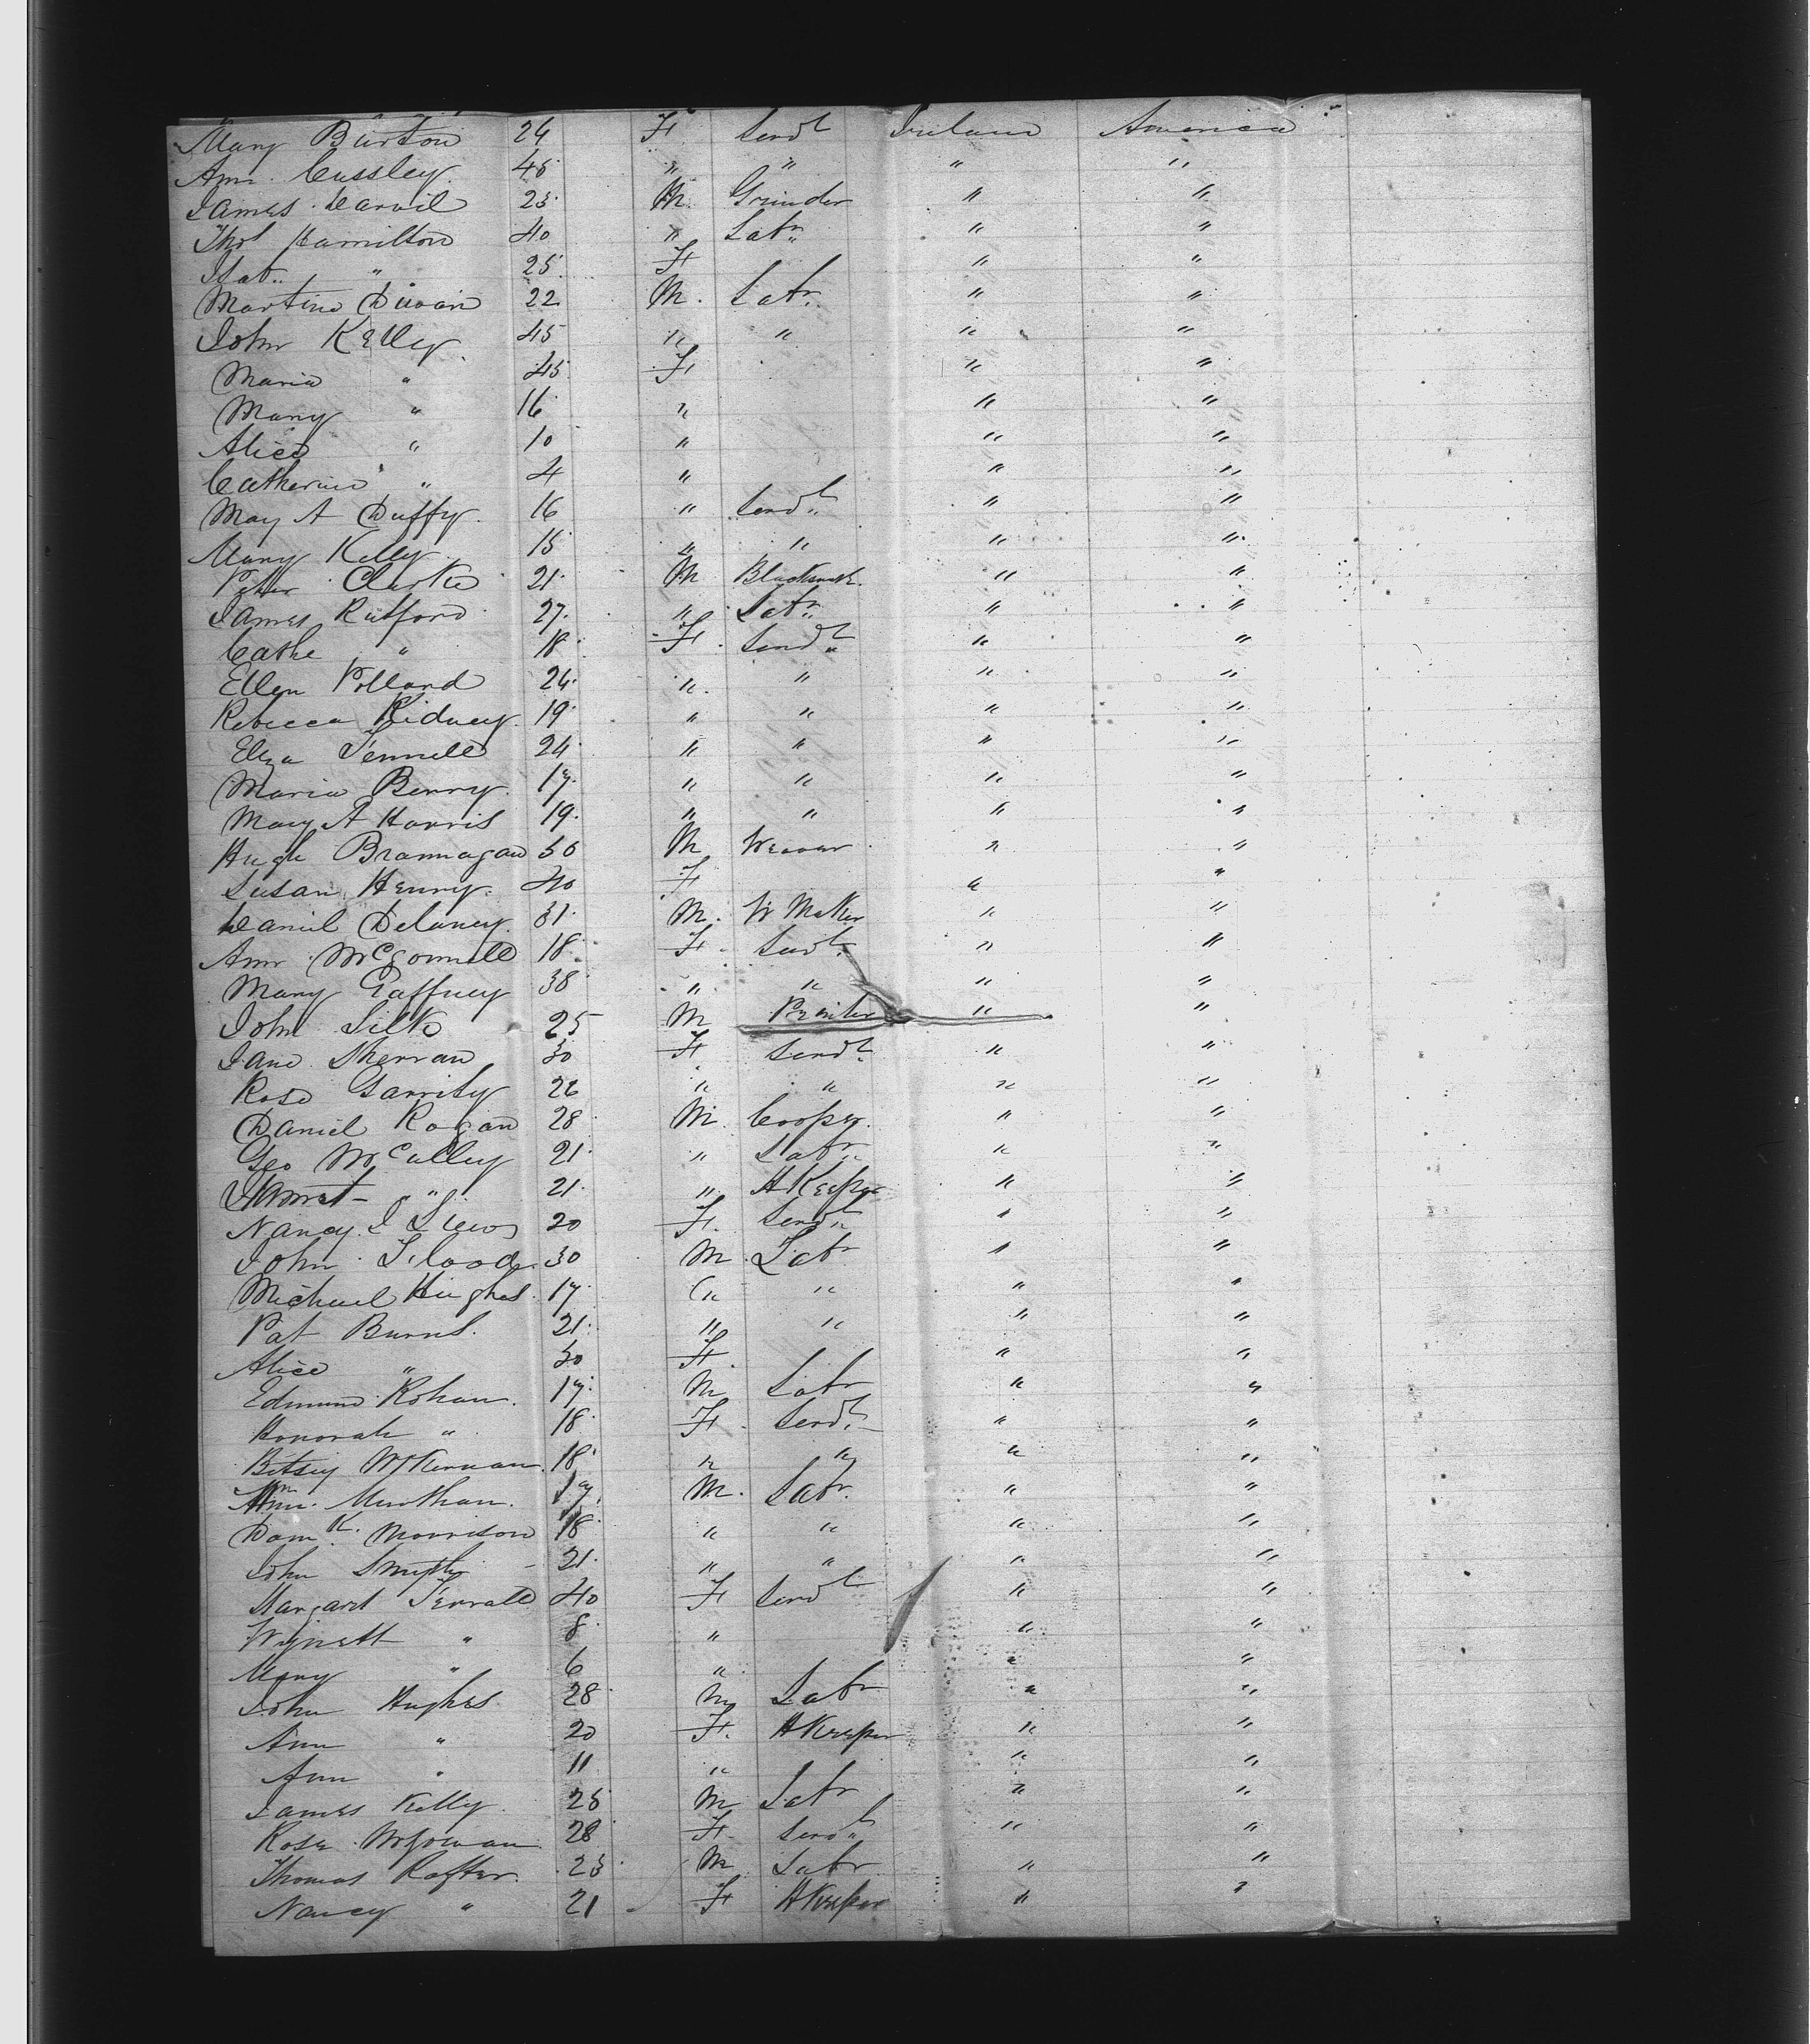 Mary Burton 24 F Servt Ireland America
Ann Cussley 45 " " " "
James Carvil 25 M Grinder " "
Thos Hamilton 40 " Labr " "
Isab " 25 F " "
Martin Duvan 22 M Labr " "
John Kelly 45 " " " "
Maria " 45 F " "
Mary " 16 " " "
Alice " 10 " " "
Catherine " 4 " " "
May A Duffy 16 " Servt " "
Mary Kelly 15 " " " "
Peter Clarke 21 M Blacksmth " "
James Rutford 27 " Labr " "
Cathe " 18 F Servt " "
Ellen Pollard 24 " " " "
Rebecca Kidney 19 " " " "
Eliza Fennell 24 " " " "
Maria Berry 17 " " " "
Mary A Harris 19 " " " "
Hugh Brannagan 50 M Weaver " "
Susan Henry 40 F " "
Daniel Delaney 31 M W Maker " "
Ann McGonnell 18 F Servt " "
Mary Gaffney 38 " " " "
John Silk 25 M Printer "  "
Jane Sherran 30 F Servt " "
Rose Garrity 22 " " " "
Daniel Rogan 28 M Cooper " "
Geo McCulley 21 " Labr " "
" 21 " H Keeper " "
Nancy J 20 F Servt " "
John Flood 30 M Labr " "
Michael Hughes 17 " " " "
Pat Burns 21 " " " "
Alice " 30 F " "
Edmund Rohan 17 M Labr " "
Honorah " 18 F Servt " "
Betsey McKernan 18 " " " "
Wm Murthan 17 M Labr " "
Dom K. Morrison 18 " " " "
John Smyth 21 " " " "
Margaret Ferrall 40 F Servt " "
" 8 " " "
Mary " 6 " " "
John Hughes 28 M Labr " "
Ann " 20 F H Keeper " "
Ann " 11 " " "
James Kelly 25 M Labr " "
Rose McGowan 28 F Servt " "
Thomas Rafter 23 M Labr " "
Nancy " 21 F H Keeper " "